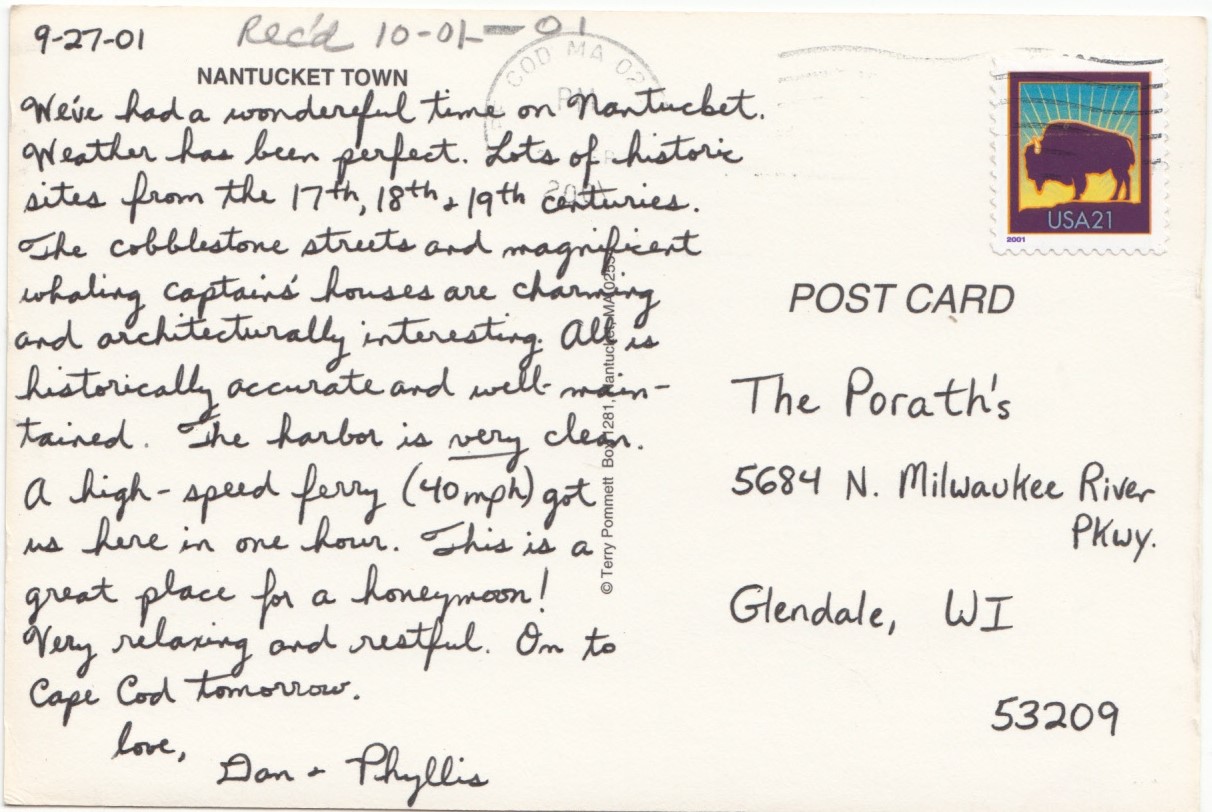 9-27-01
Rec'd 10-01-01
NANTUCKET TOWN
COD MA 02
PM
We've had a wonderful time on Nantucket.
Weather has been perfect. Lots of historic
sites from the 17th, 18th + 19th centuries.
The cobblestone streets and magnificent
whaling captains' houses are charming
and architecturally interesting. All is
historically accurate and well-main-
tained. The harbor is very clean.
A high-speed ferry (40 mph) got
us here in one hour. This is a
great place for a honeymoon!
Very relaxing and restful. On to
Cape Cod tomorrow.
love,
Dan + Phyllis
© Terry Pommett Box 1281, Nantucket, MA
USA21
2001
POST CARD
The Porath's
5684 N. Milwaukee River
PKwy.
Glendale, WI
53209